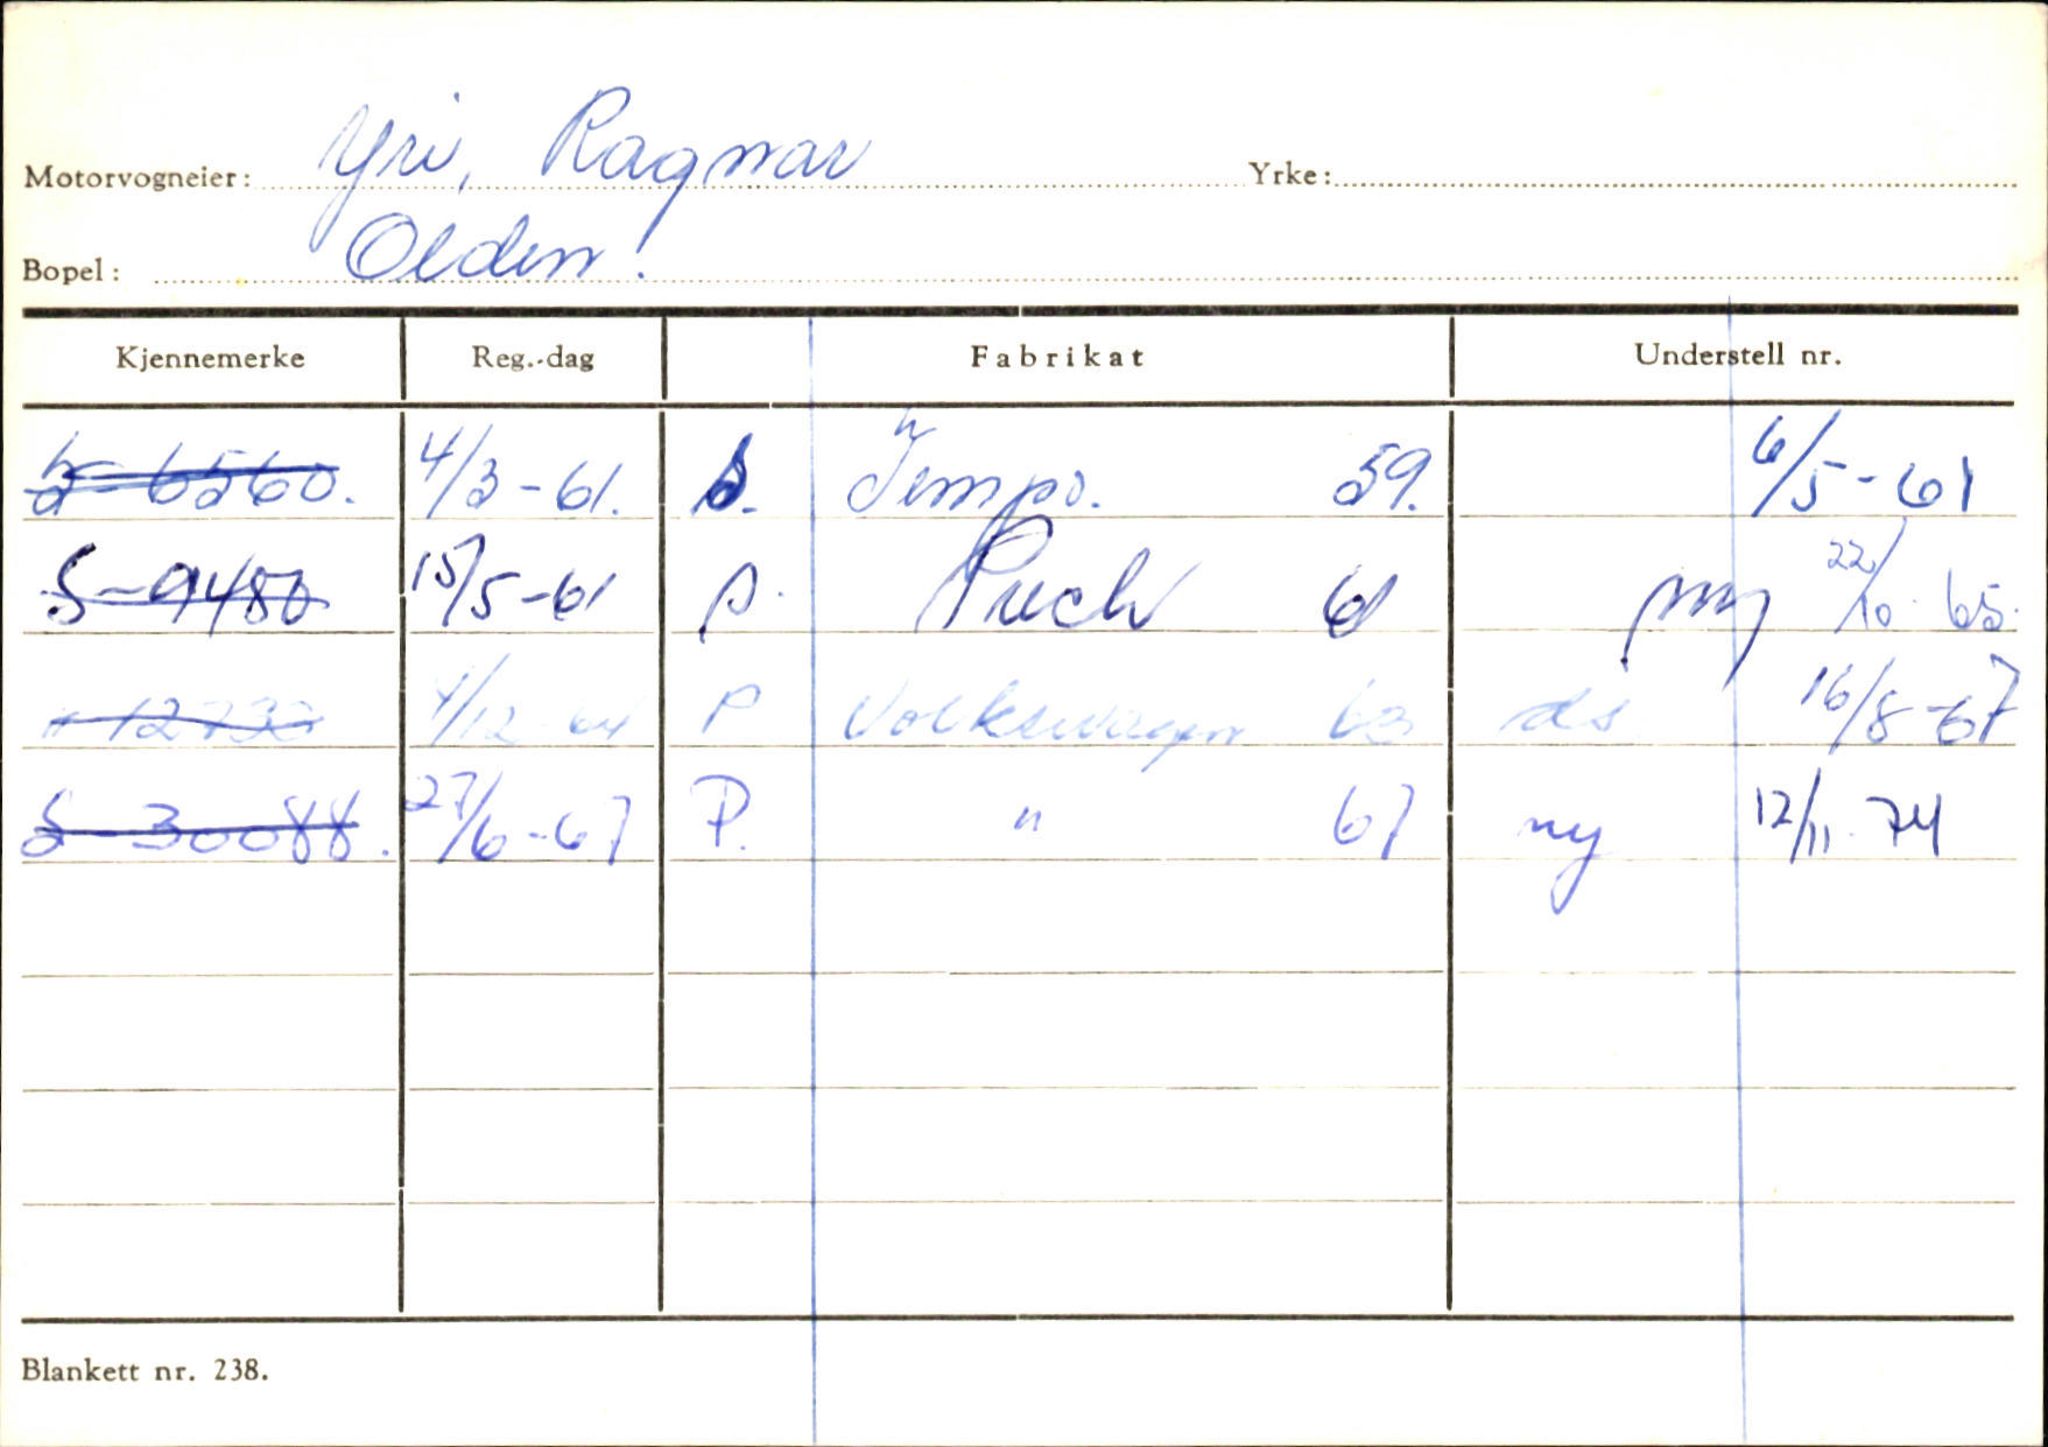 Motorvogneier: Yri, Ragnar Yrke:
Bopel: Olden.
Kjennemerke Reg.-dag Fabrikat Understell nr.
S-6560. 4/3-61. S. Tempo. 59. 6/5-61
S-9480 15/5-61 P. Puch 61 ny 22/10-65.
" 12732 4/12-64 P Volkswagen 63 ds 16/8-67
S-30088. 27/6-67 P. " 67 ny 12/11-74
Blankett nr. 238.